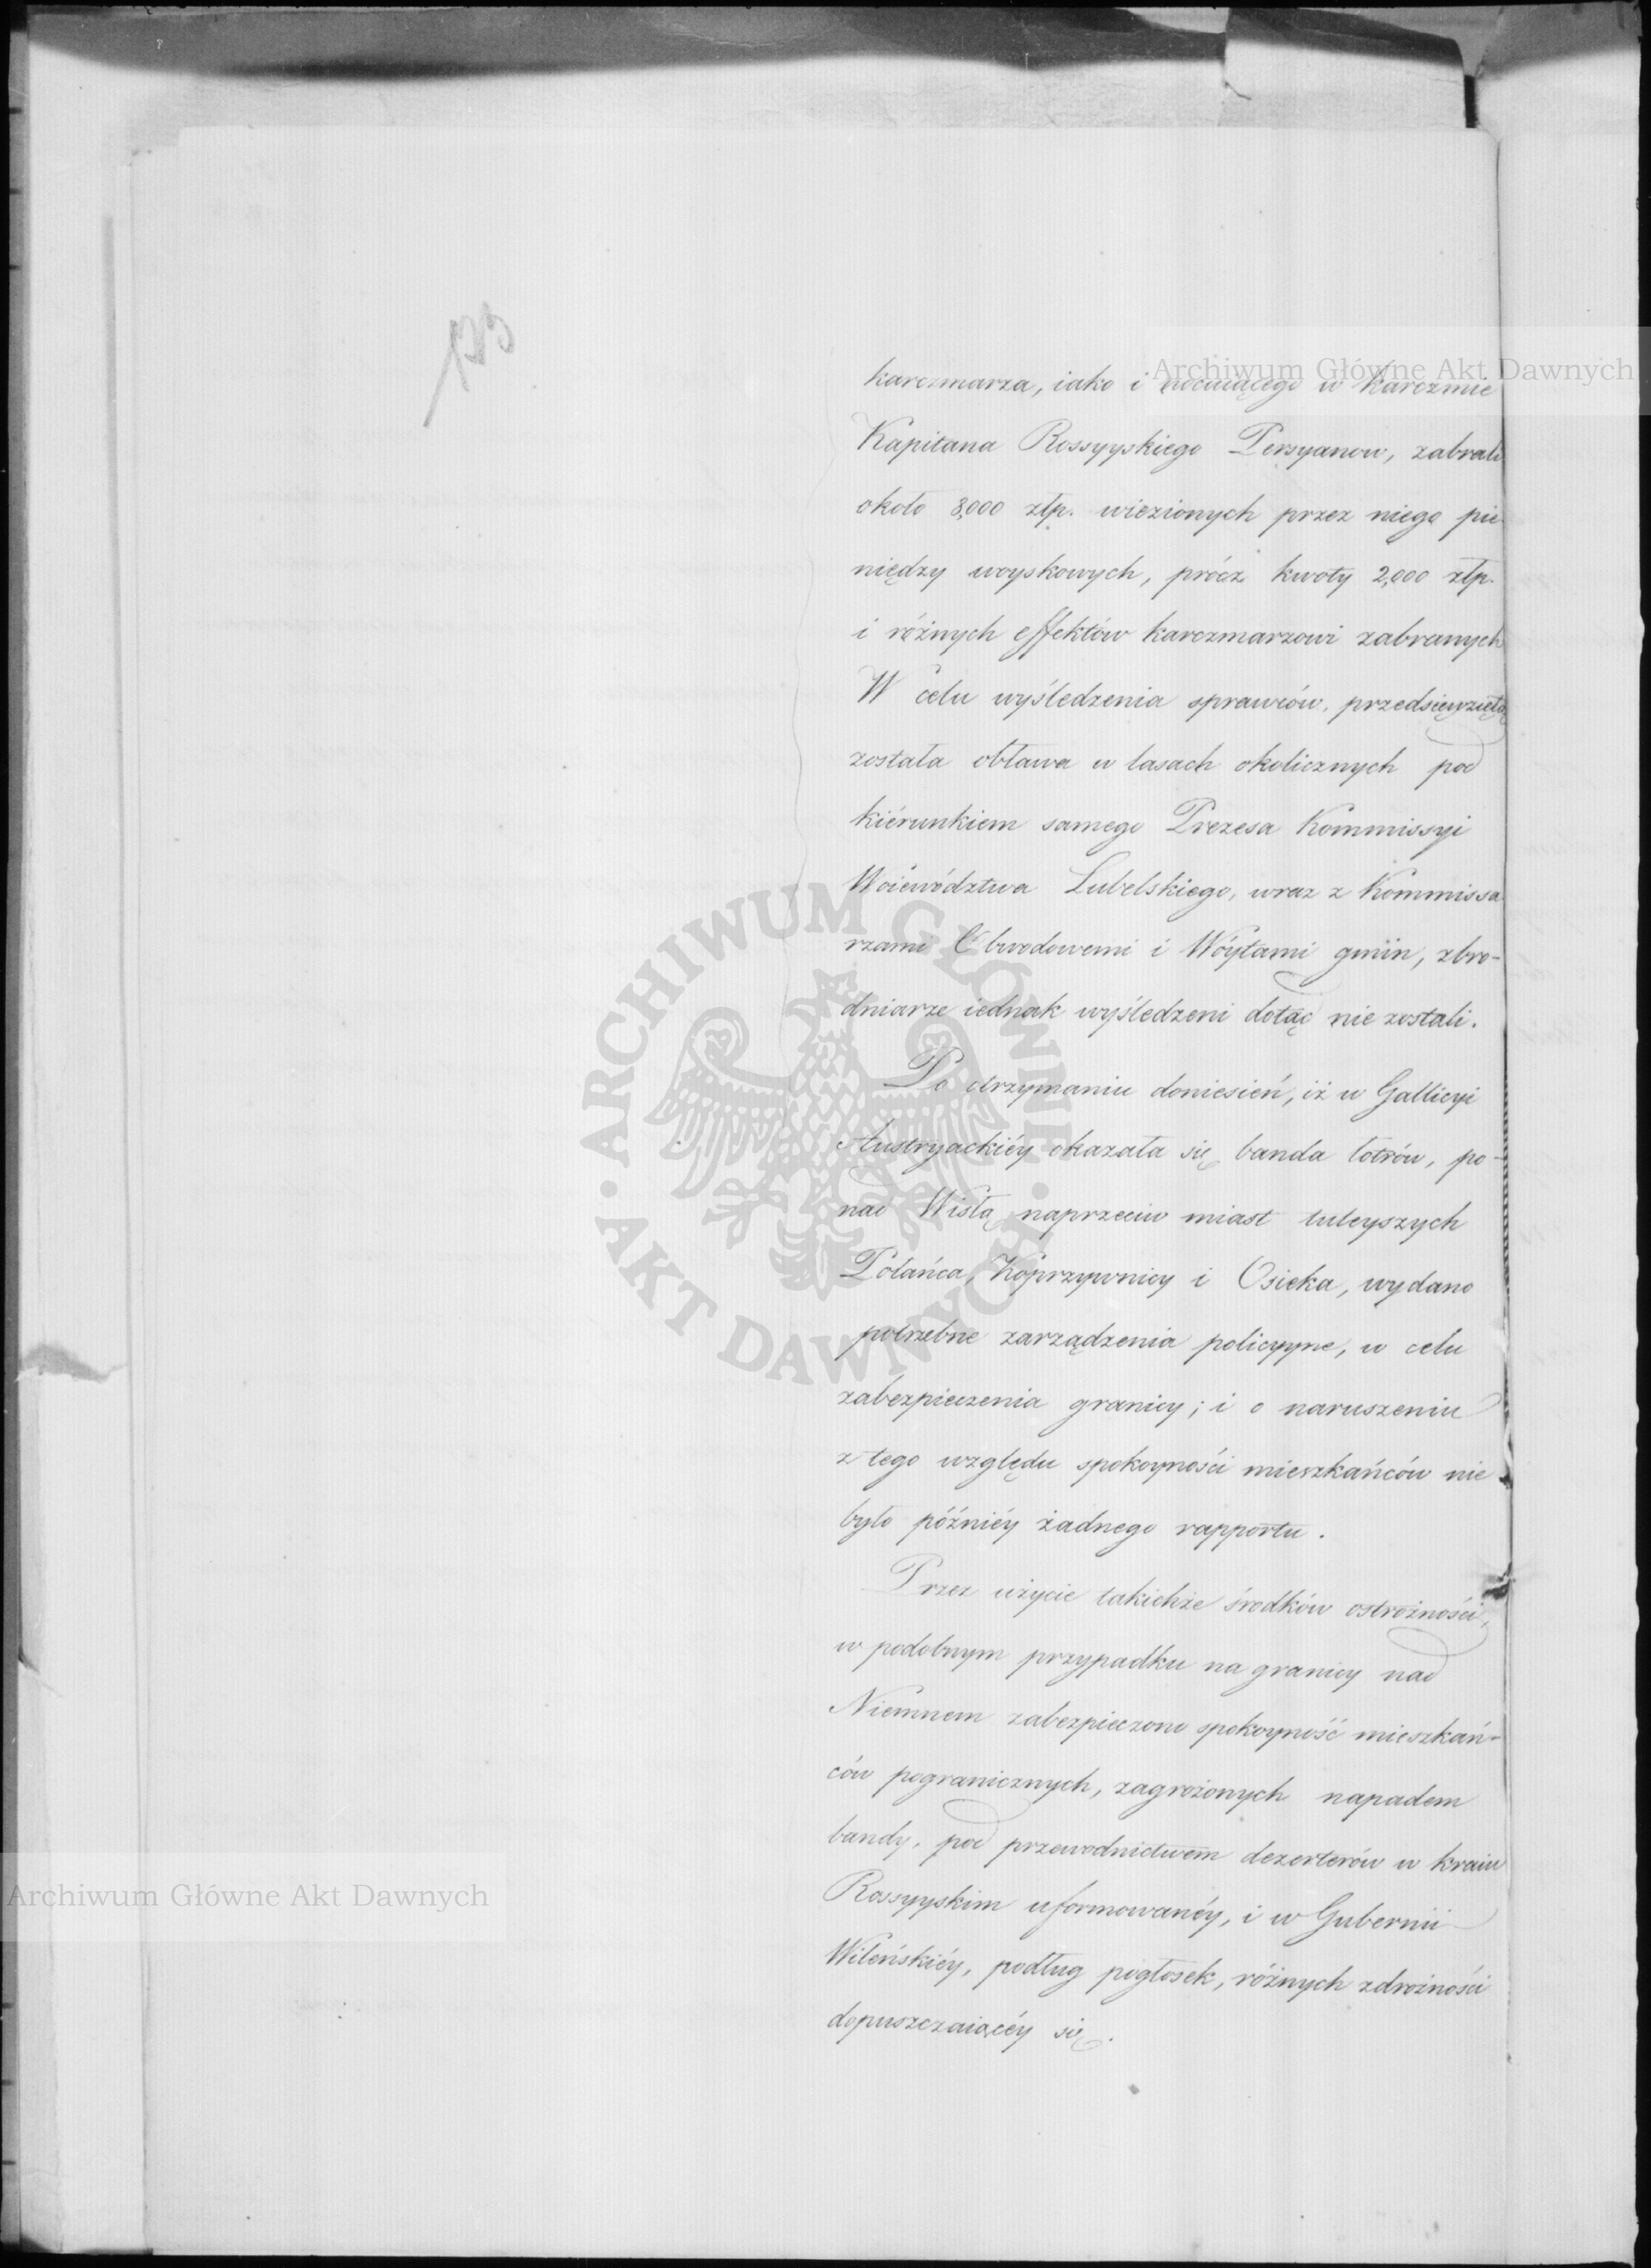 133
karczmarza, iako i nocuiącego w karczmie
Kapitana Rossyyskiego Persyanow, zabrali
około 8,000 złp. wiezionych przez niego pie
niędzy woyskowych, prócz kwoty 2,000 złp.
i różnych effektów karczmarzowi zabranych
W celu wyśledzenia sprawców, przedsięwzięta
została obława w lasach okolicznych pod
kiérunkiem samego Prezesa Kommissyi
Woiewództwa Lubelskiego, wraz z Kommissa
rzami Obwodowemi i Wóytami gmin, zbro-
dniarze iednak wyśledzeni dotąd nie zostali.
Po otrzymaniu doniesień, iż w Gallicyi
Austryackiéy okazała się banda łotrów, po-
nad Wisłą naprzeciw miast tuteyszych
Połańca, Koprzywnicy i Osieka, wydano
potrzebne zarządzenia policyyne, w celu
zabezpieczenia granicy; i o naruszeniu
z tego względu spokoyności mieszkańców nie
było późniéy żadnego rapportu.
Przez użycie takichże środków ostrożności,
w podobnym przypadku na granicy nad
Niemnem zabezpieczono spokoyność mieszkań-
ców pogranicznych, zagrożonych napadem
bandy, pod przewodnictwem dezerterów w kraiu
Rossyyskim uformowanéy, i w Gubernii
Wileńskiéy, podług pogłosek, różnych zdrożności
dopuszczaiącéy się.
Archiwum Główne Akt Dawnych
ARCHIWUM GŁÓWNE AKT DAWNYCH
Archiwum Główne Akt Dawnych